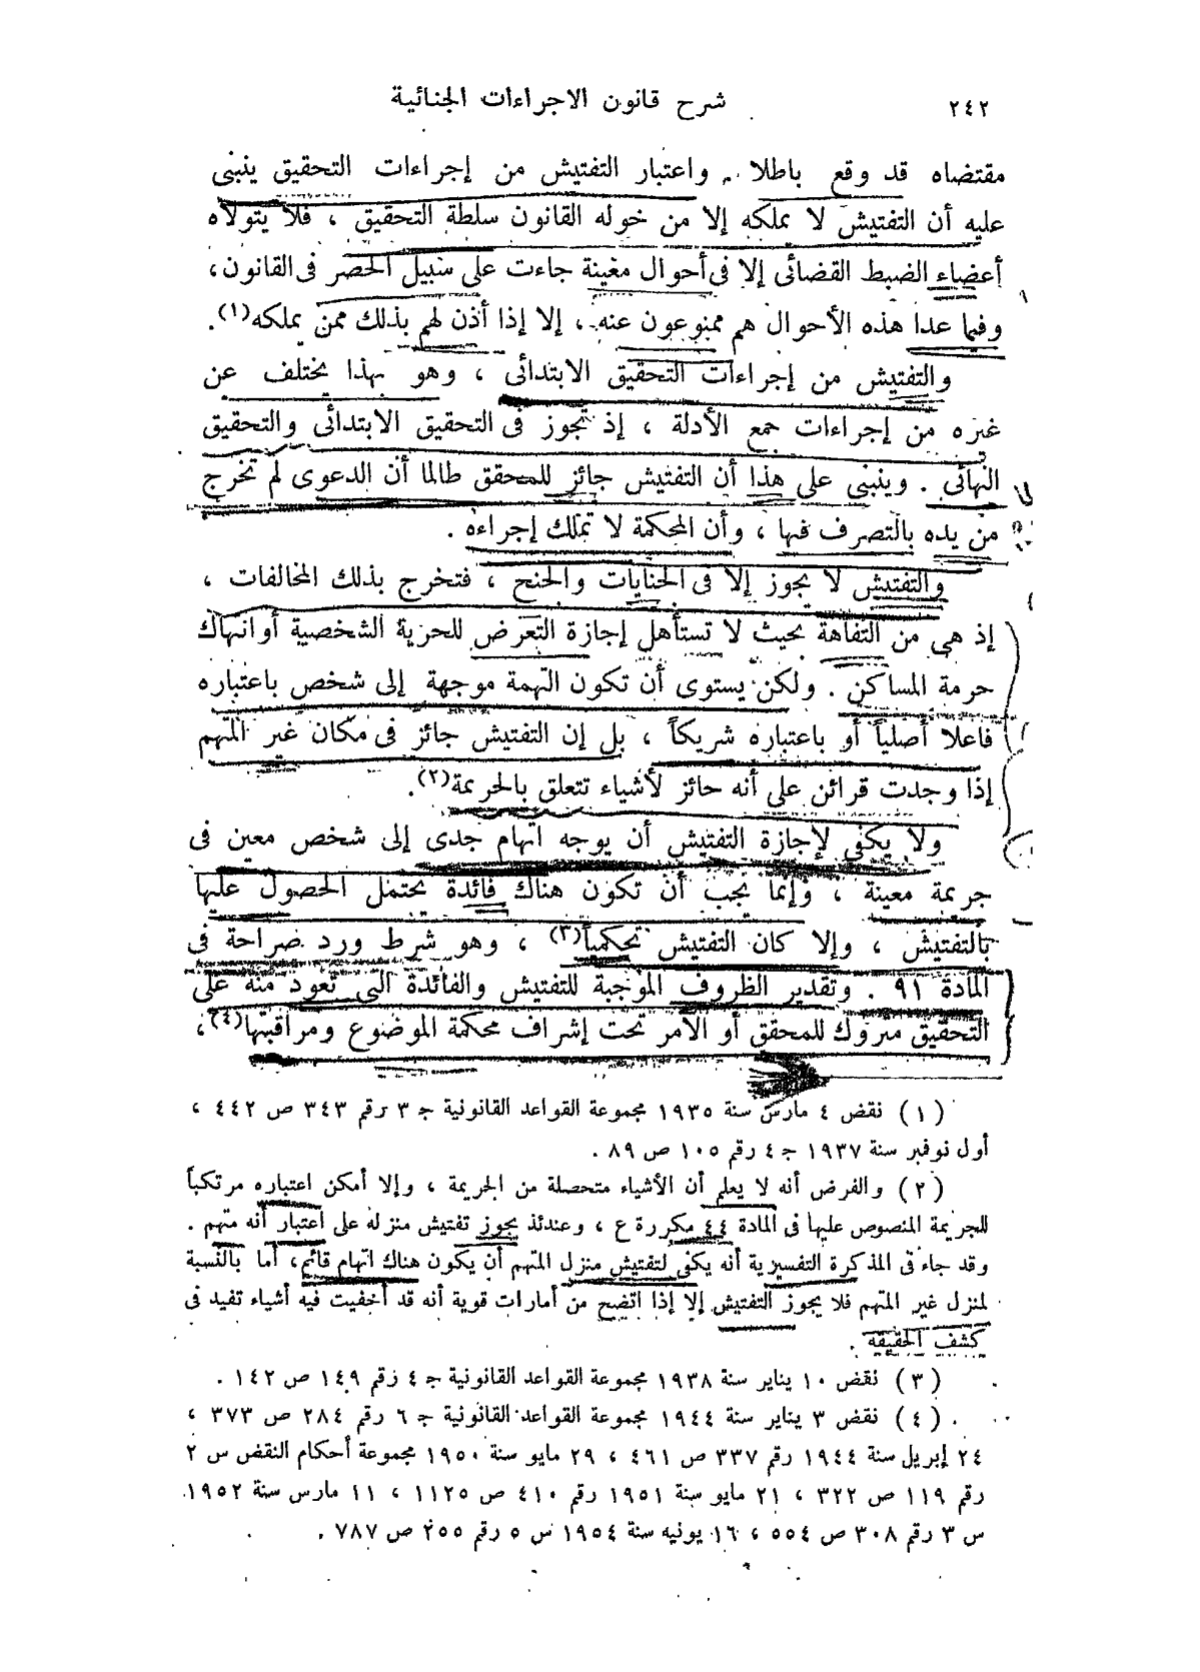 ٢٤٢ شرح قانون الاجراءات الجنائية
مقتضاه قد وقع باطلا . واعتبار التفتيش من إجراءات التحقيق ينبنى
عليه أن التفتيش لا يملكه إلا من خوله القانون سلطة التحقيق ، فلا يتولاه
أعضاء الضبط القضائى إلا فى أحوال معينة جاءت على سبيل الحصر فى القانون ،
وفيما عدا هذه الأحوال هم ممنوعون عنه ، إلا إذا أذن لهم بذلك ممن يملكه(١).
والتفتيش من إجراءات التحقيق الابتدائى ، وهو بهذا يختلف عن
غيره من إجراءات جمع الأدلة ، إذ تجوز فى التحقيق الابتدائى والتحقيق
النهائى . وينبنى على هذا أن التفتيش جائز للمحقق طالما أن الدعوى لم تخرج
من يده بالتصرف فيها ، وأن المحكمة لا تملك إجراءه .
والتفتيش لا يجوز إلا فى الجنايات والجنح ، فتخرج بذلك المخالفات ،
إذ هى من التفاهة بحيث لا تستأهل إجازة التعرض للحرية الشخصية أو انتهاك
حرمة المساكن . ولكن يستوى أن تكون التهمة موجهة إلى شخص باعتباره
فاعلا أصلياً أو باعتباره شريكاً ، بل إن التفتيش جائز فى مكان غير المتهم
إذا وجدت قرائن على أنه حائز لأشياء تتعلق بالجريمة(٢).
ولا يكفى لإجازة التفتيش أن يوجه اتهام جدى إلى شخص معين فى
جريمة معينة ، وإنما يجب أن تكون هناك فائدة يحتمل الحصول عليها
بالتفتيش ، وإلا كان التفتيش تحكمياً(٣) ، وهو شرط ورد صراحة فى
المادة ٩١ . وتقدير الظروف الموجبة للتفتيش والفائدة التى تعود منه على
التحقيق متروك للمحقق أو الآمر تحت إشراف محكمة الموضوع ومراقبتها(٤) ،
(١) نقض ٤ مارس سنة ١٩٣٥ مجموعة القواعد القانونية ج ٣ رقم ٣٤٣ ص ٤٤٢ ،
أول نوفبر سنة ١٩٣٧ ج ٤ رقم ١٠٥ ص ٨٩ .
(٢) والفرض أنه لا يعلم أن الأشياء متحصلة من الجريمة ، وإلا أمكن اعتباره مرتكباً
للجريمة المنصوص عليها فى المادة ٤٤ مكررة ع ، وعندئذ يجوز تفتيش منزله على اعتبار أنه متهم .
وقد جاء فى المذكرة التفسيرية أنه يكفى لتفتيش منزل المتهم أن يكون هناك اتهام قائم، أما بالنسبة
لمنزل غير المتهم فلا يجوز التفتيش إلا إذا اتضح من أمارات قوية أنه قد أخفيت فيه أشياء تفيد فى
كشف الحقيقة .
(٣) نقض ١٠ يناير سنة ١٩٣٨ مجموعة القواعد القانونية ج ٤ رقم ١٤٩ ص ١٤٢ .
(٤) نقض ٣ يناير سنة ١٩٤٤ مجموعة القواعد القانونية ج ٦ رقم ٢٨٤ ص ٣٧٣ ،
٢٤ إبريل سنة ١٩٤٤ رقم ٣٣٧ ص ٤٦١ ، ٢٩ مايو سنة ١٩٥٠ مجموعة أحكام النقض س ٢
رقم ١١٩ ص ٣٢٢ ، ٢١ مايو سنة ١٩٥١ رقم ٤١٠ ص ١١٢٥ ، ١١ مارس سنة ١٩٥٢
س ٣ رقم ٣٠٨ ص ٥٥٤ ، ١٦ يونيه سنة ١٩٥٤ س ٥ رقم ٢٥٥ ص ٧٨٧ .